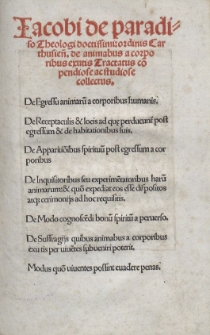 Iacobi de paradi-
so Theologi doctissimi: ordinis Car
thusieñ. de animabus a corpo
ribus exutis Tractatus cõ
pendiose ac studiose
collectus.
De Egressu animarũ a corporibus humanis.
De Receptaculis & locis ad que perducant̃ post
egressum & de habitationibus suis.
De Apparitiõibus spirituũ post egressum a cor
poribus
De Inquisitoribus seu experimẽtatoribus harũ
animarum: & quõ expediat eos esse dispositos
atq; cerimonijs ad hoc requisitis.
De Modo cognoscẽdi bonũ spiritũ a peruerso.
De Suffragijs quibus animabus a corporibus
exutis per viuẽtes subueniri poterit.
Modus quo viuentes possint euadere penas.